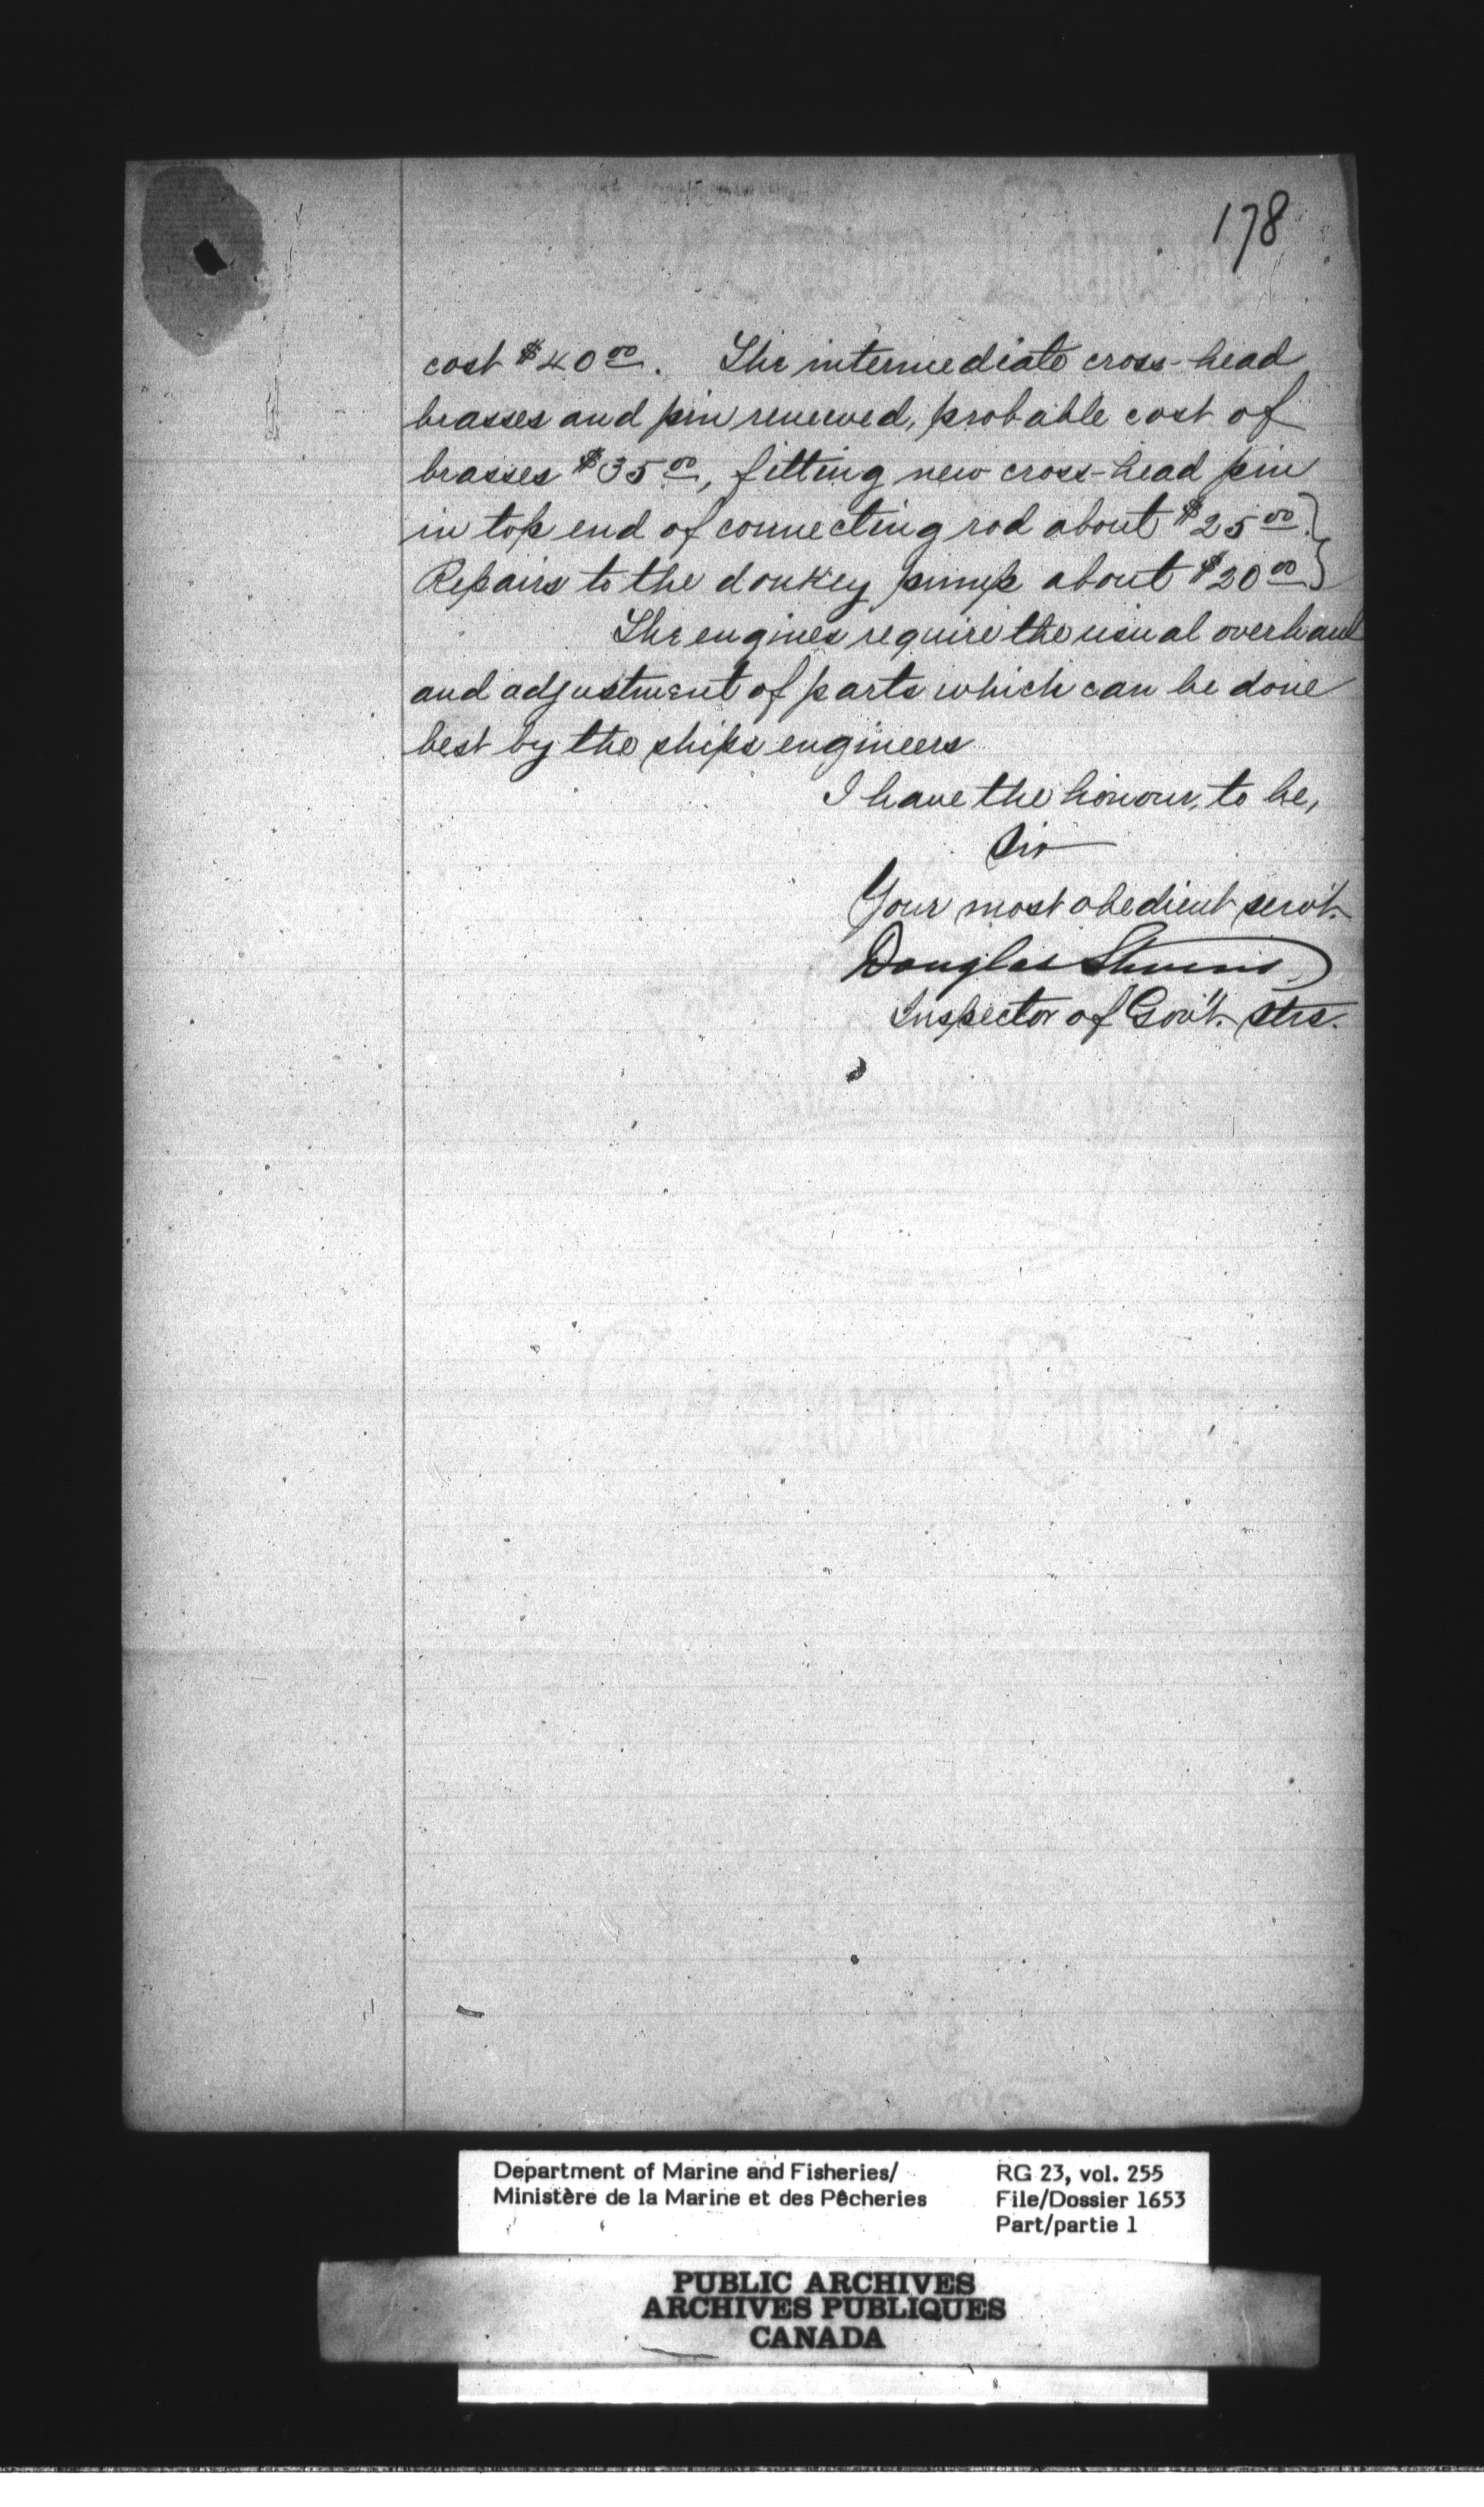 178
cost $40 00. The intermediate cross-head
brasses and pin renewed, probable cost of
brasses $35 00, fitting new cross-head pin
in top end of connecting rod about $25 00.
Repairs to the donkey pump about $20 00
The engines require the usual overhaul
and adjustment of parts which can be done
best by the ships engineers
I have the honour, to be,
Sir
Your most obedient serv't.
Douglas Stevens
Inspector of Gov't. Strs.
Department of Marine and Fisheries/
Ministère de la Marine et des Pêcheries
RG 23, vol. 255
File/Dossier 1653
Part/partie 1
PUBLIC ARCHIVES
ARCHIVES PUBLIQUES
CANADA